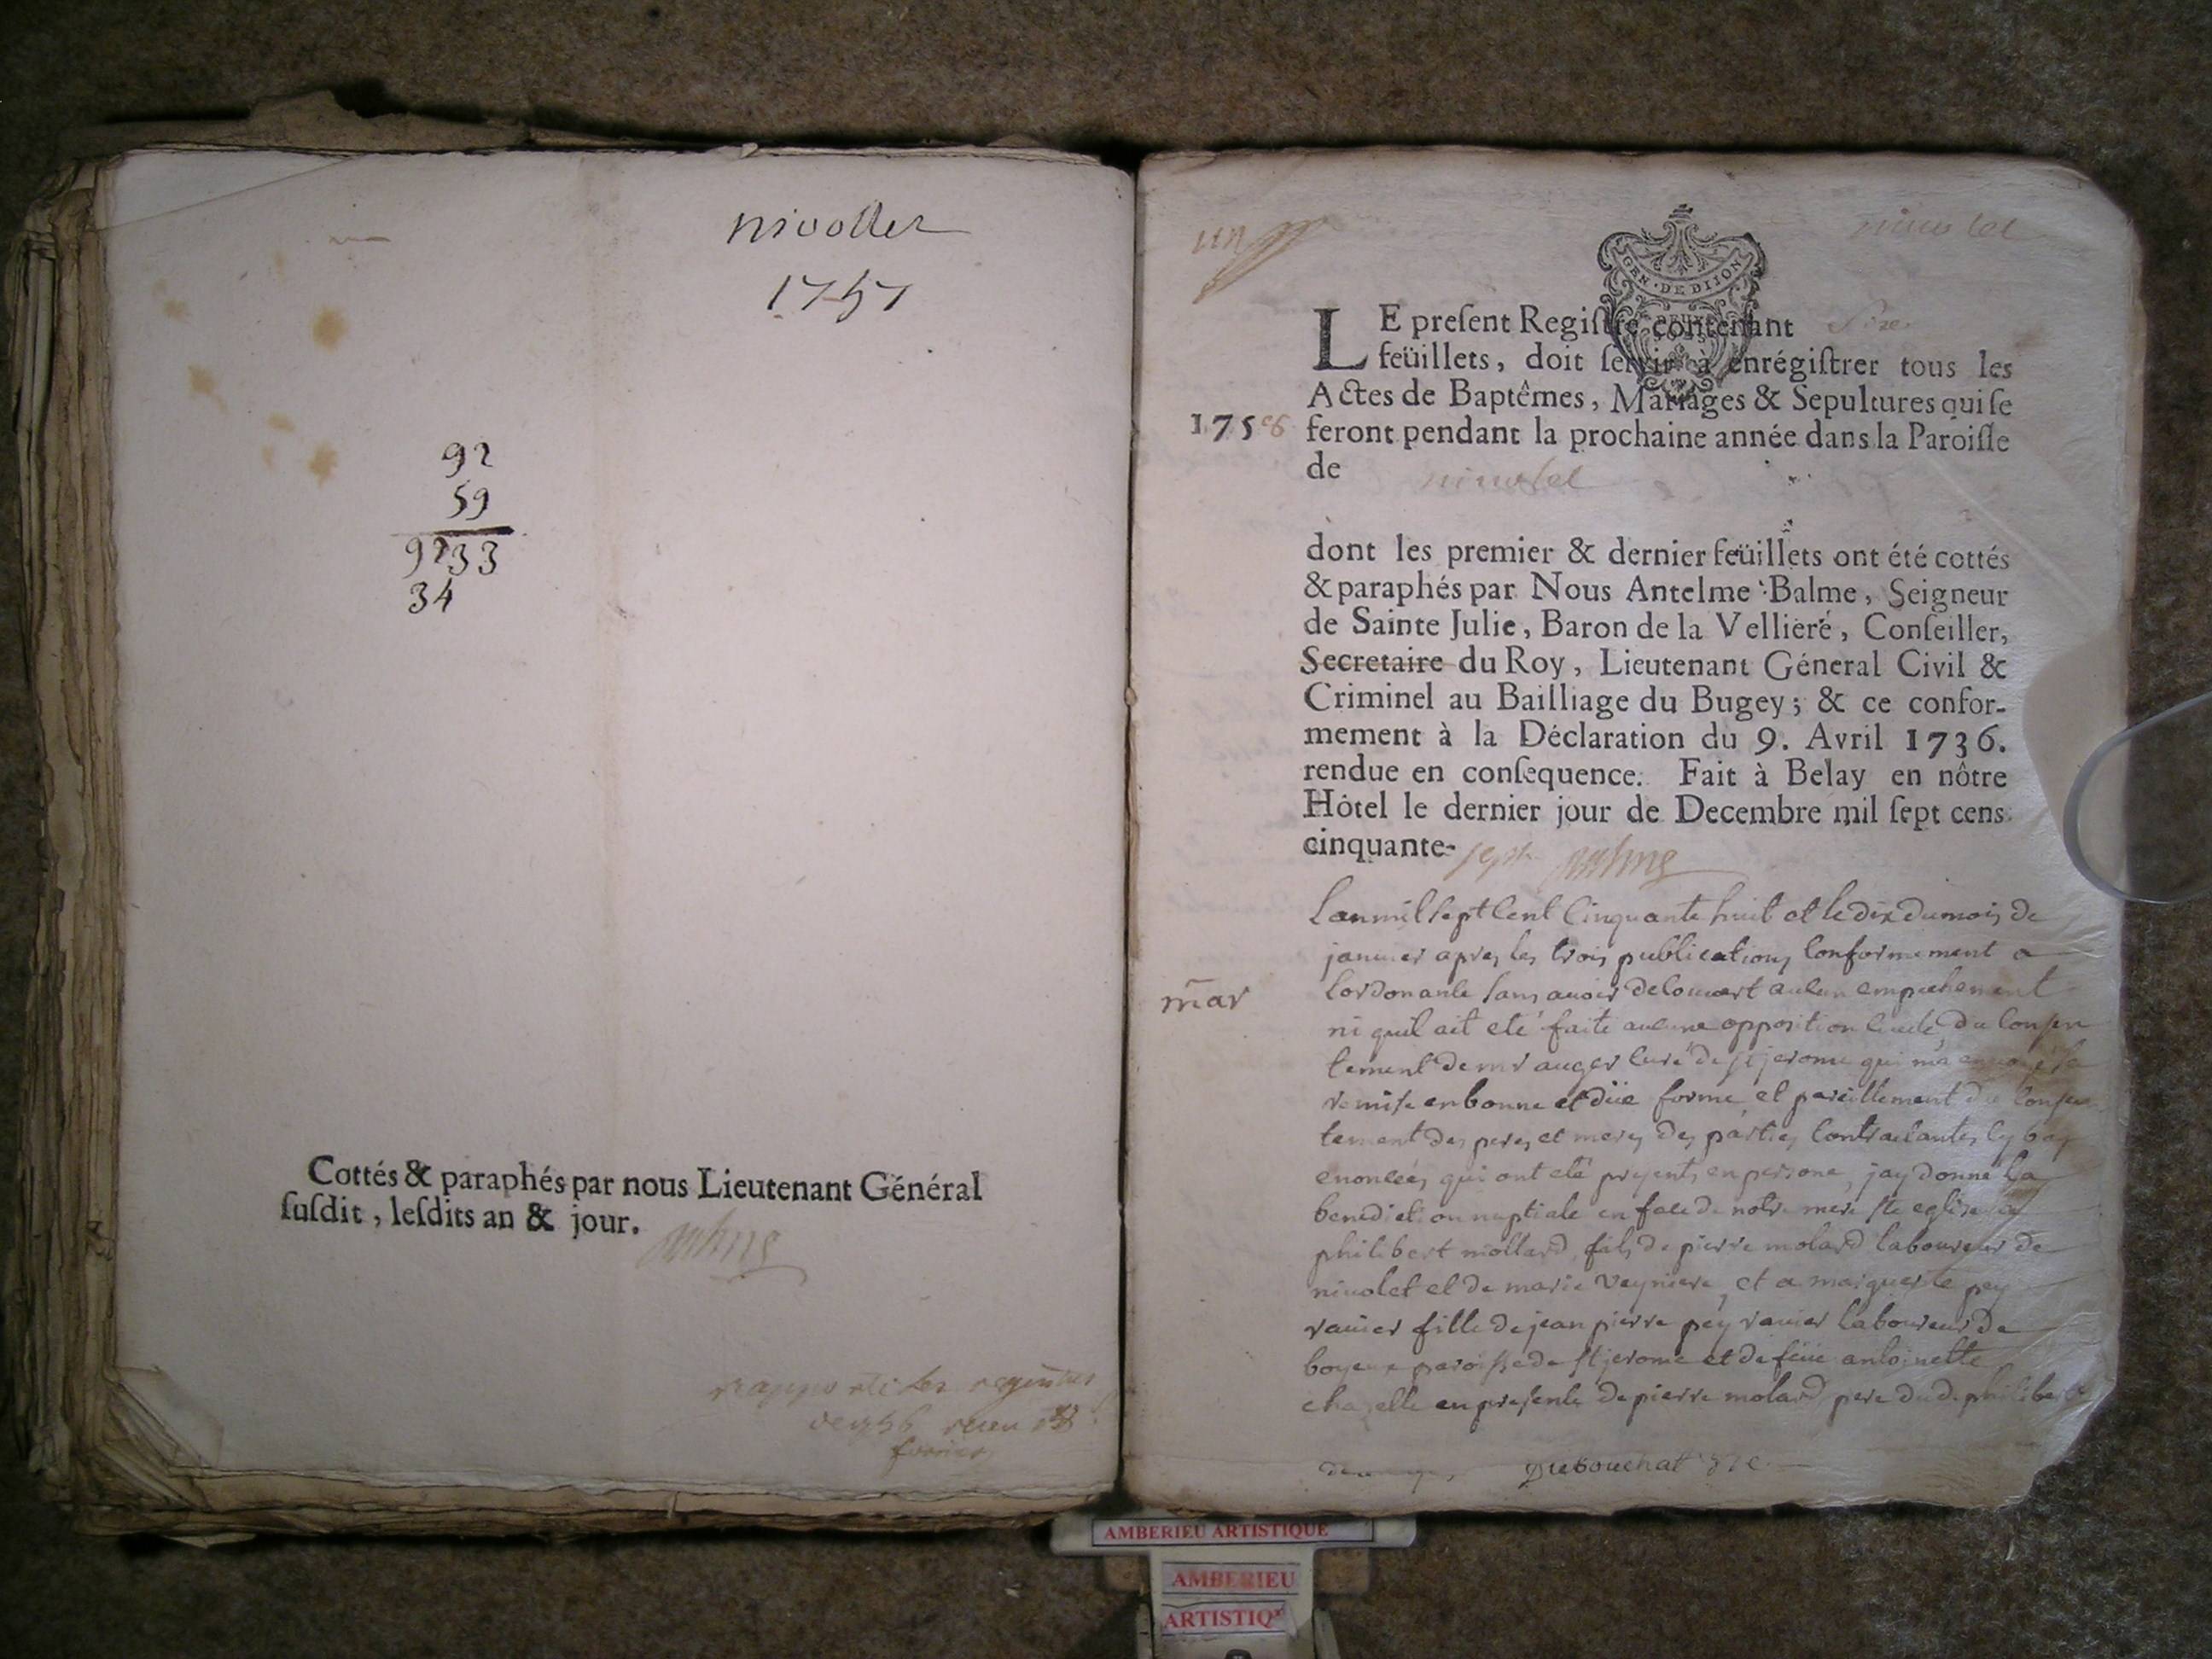 nivollet
1757
92
59
9233
34
Cottés & paraphés par nous Lieutenant Général
susdit, lesdits an & jour.
Balme
un
nivolet
GEN · DE DIJON
LE present Registre contenant
feüillets, doit servir à enrégistrer tous les
Actes de Baptêmes, Mariages & Sepultures qui se
175
feront pendant la prochaine année dans la Paroisse
de nivolet
dont les premier & dernier feüillets ont été cottés
& paraphés par Nous Antelme Balme, Seigneur
de Sainte Julie, Baron de la Velliere, Conseiller,
Secretaire du Roy, Lieutenant Géneral Civil &
Criminel au Bailliage du Bugey; & ce confor-
mement à la Déclaration du 9. Avril 1736.
rendue en consequence. Fait à Belay en nôtre
Hôtel le dernier jour de Decembre mil sept cens
cinquante-sept Balme
Lan mil sept Cent Cinquante huit et le dix du mois de
janvier apres les trois publications Conformement a
mar
Lordonance sans avoir decouvert aucun empechement
ni quil ait eté faite aucune opposition du Consen
tement de mr auger Curé de st jerome qui ma envoyé la
remise en bonne et düe forme et pareillement du Consen
tement des peres et meres des parties Contractantes Cy bas
enoncées qui ont eté presents en persone, jay donné la
benediction nuptiale en face de notre mere ste eglise a
philibert mollard fils de pierre molard laboureur de
nivolet et de marie Veyniere, et a marguerite pey
ravier fille de jean pierre pey ravier laboureur de
boyeux paroisse de st jerome et de feüe antoinette
chazelle en presence de pierre molard pere du d. philibert
Dubouchat
AMBERIEU ARTISTIQUE
AMBERIEU
ARTISTIQ